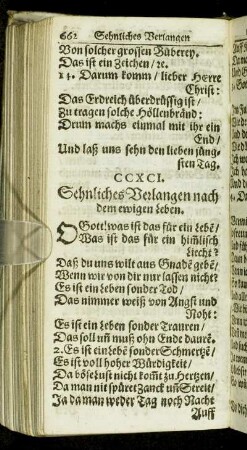 662 Sehnliches Verlangen
Von solcher grossen Büberey.
Das ist ein Zeichen / ꝛc.
13. Darum komm / lieber Herre
Christ:
Das Erdreich überdrüssig ist /
Zu tragen solche Höllenbränd:
Drum machs einmal mit ihr ein
End /
Und laß uns sehn den lieben jüng-
sten Tag.
CCXCI.
Sehnliches Verlangen nach
dem ewigen Leben.
O Gott! was ist das für ein Lebē /
Was ist das für ein him̄lisch
Liecht?
Daß du uns wilt aus Gnadē gebē /
Wenn wir von dir nur lassen nicht?
Es ist ein Leben sonder Tod /
Das nimmer weiß von Angst und
Noht:
Es ist ein Leben sonder Trauren /
Das soll un̄ muß ohn Ende daurē.
2. Es ist ein Lebē sonder Schmertzē /
Es ist voll hoher Würdigkeit /
Da böse Lust nicht kom̄t zu Hertzen /
Da man nit spüret Zanck un̄ Streit /
Ja da man weder Tag noch Nacht
Auff